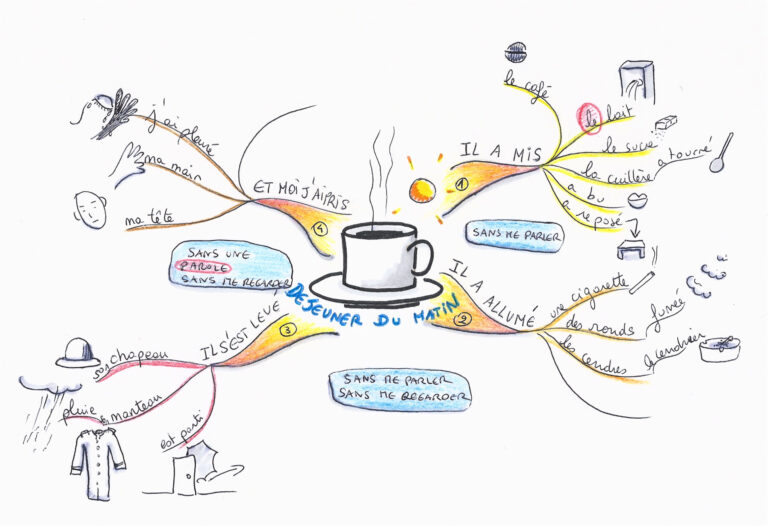 DEJEUNER DU MATIN
1
IL A MIS
le café
le lait
le sucre
la cuillère
a tourné
a bu
a reposé
SANS ME PARLER
2
IL A ALLUMÉ
une cigarette
des ronds
fumée
les cendres
cendrier
SANS ME PARLER
SANS ME REGARDER
3
IL S'EST LEVÉ
son chapeau
manteau
pluie
est parti
SANS UNE
PAROLE
SANS ME REGARDER
4
ET MOI J'AI PRIS
ma tête
ma main
j'ai pleuré